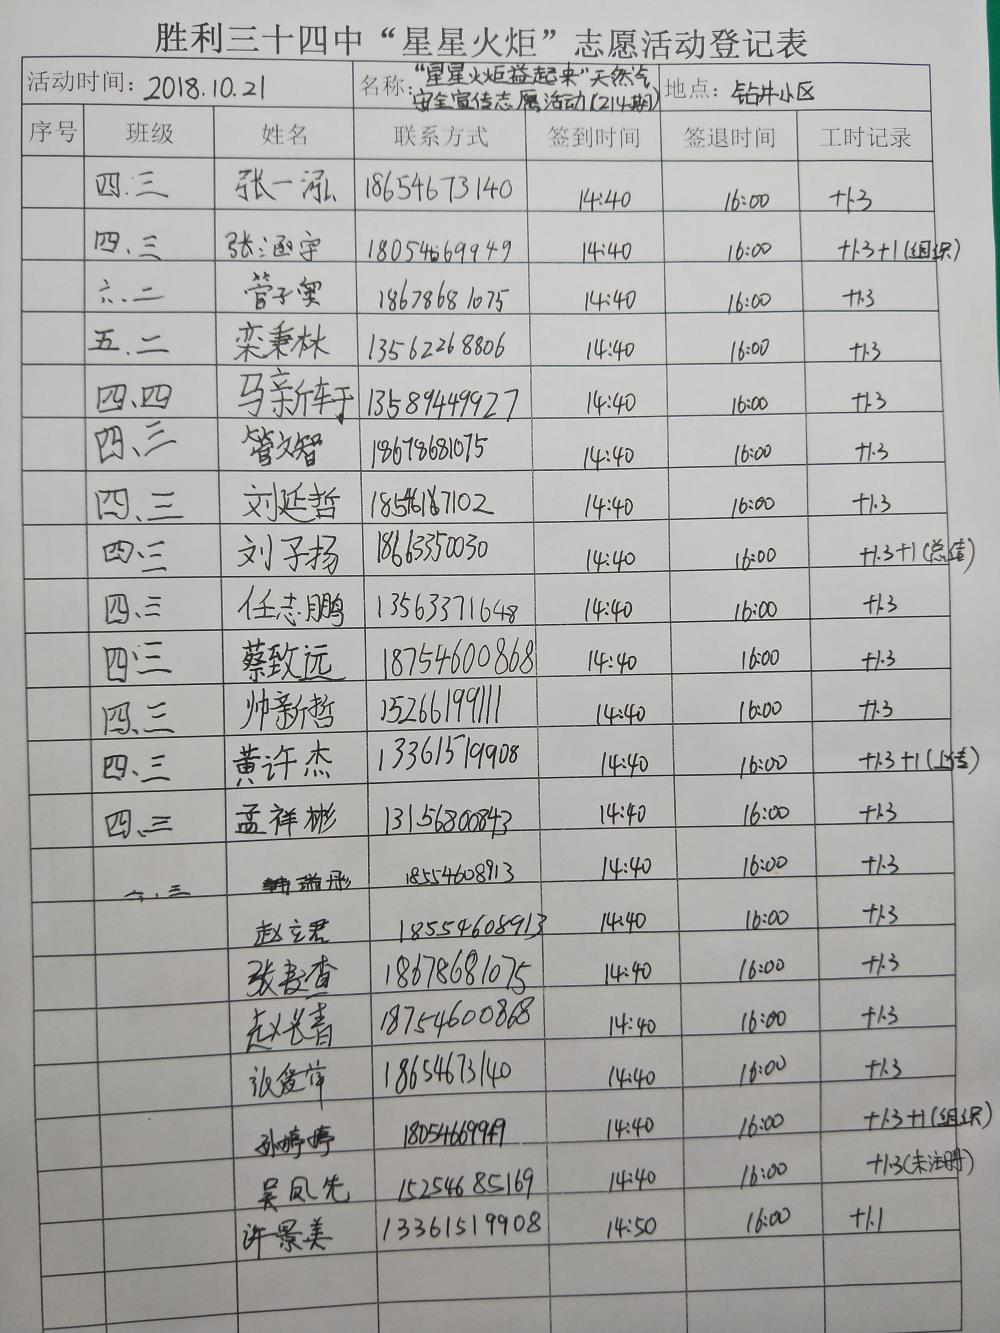 胜利三十四中“星星火炬”志愿活动登记表
活动时间: 2018.10.21 名称: “星星火炬益起来”天然气安全宣传志愿活动(214期) 地点: 钻井小区
序号 班级 姓名 联系方式 签到时间 签退时间 工时记录
四.三 张一泓 18654673140 14:40 16:00 +1.3
四、三 张涵宇 18054669949 14:40 16:00 +1.3+1(组织)
六.二 管子奥 18678681075 14:40 16:00 +1.3
五.二 栾秉林 13562268806 14:40 16:00 +1.3
四、四 马新轩 13589449927 14:40 16:00 +1.3
四、三 管文智 18678681075 14:40 16:00 +1.3
四、三 刘延哲 14:40 16:00 +1.3
四、三 刘子扬 18663350030 14:40 16:00 +1.3+1(总结)
四.三 任志鹏 13563371648 14:40 16:00 +1.3
四.三 蔡致远 18754600868 14:40 16:00 +1.3
四、三 帅新哲 15266199111 14:40 16:00 +1.3
四、三 黄许杰 13361519908 14:40 16:00 +1.3+1(上传)
四、三 孟祥彬 13156800843 14:40 16:00 +1.3
六、三 韩瑞彤 18554608913 14:40 16:00 +1.3
赵立君 18554608913 14:40 16:00 +1.3
18678681075 14:40 16:00 +1.3
赵长青 18754600868 14:40 16:00 +1.3
18654673140 14:40 16:00 +1.3
孙婷婷 18054669949 14:40 16:00 +1.3+1(组织)
吴凤先 15254685169 14:40 16:00 +1.3(未注册)
许景美 13361519908 14:50 16:00 +1.1